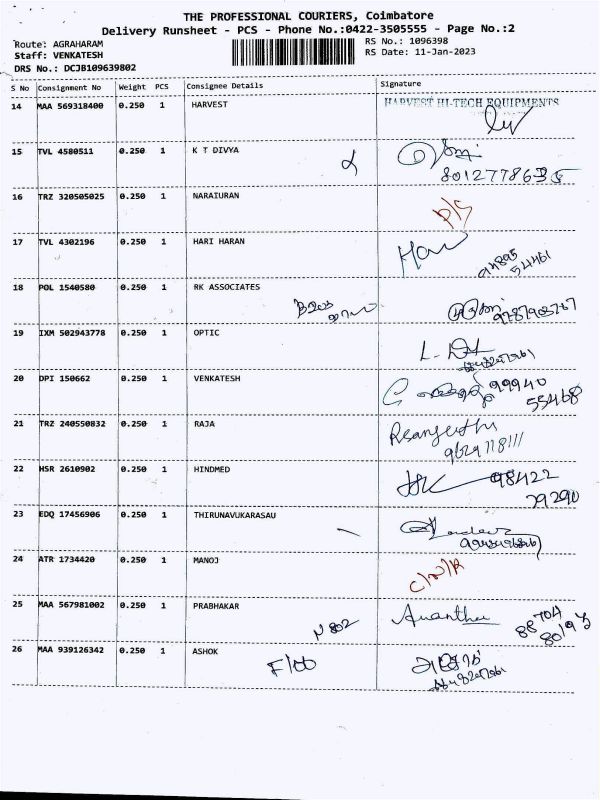 THE PROFESSIONAL COURIERS, Coimbatore
Delivery Runsheet - PCS - Phone No.:0422-3505555 - Page No.:2
Route: AGRAHARAM
Staff: VENKATESH
DRS No.: DCJB109639802
RS No.: 1096398
RS Date: 11-Jan-2023
S No Consignment No Weight PCS Consignee Details Signature
14 MAA 569318400 0.250 1 HARVEST HARVEST HI-TECH EQUIPMENTS
15 TVL 4580511 0.250 1 K T DIVYA
16 TRZ 320505025 0.250 1 NARAIURAN
17 TVL 4302196 0.250 1 HARI HARAN
94895
54461
18 POL 1540580 0.250 1 RK ASSOCIATES
9787903767
19 IXM 502943778 0.250 1 OPTIC
20 DPI 150662 0.250 1 VENKATESH 99940
55468
21 TRZ 240550832 0.250 1 RAJA
9629118111
22 HSR 2610902 0.250 1 HINDMED 98422
29290
23 EDQ 17456906 0.250 1 THIRUNAVUKARASAU
24 ATR 1734420 0.250 1 MANOJ
25 MAA 567981002 0.250 1 PRABHAKAR
N 802
26 MAA 939126342 0.250 1 ASHOK